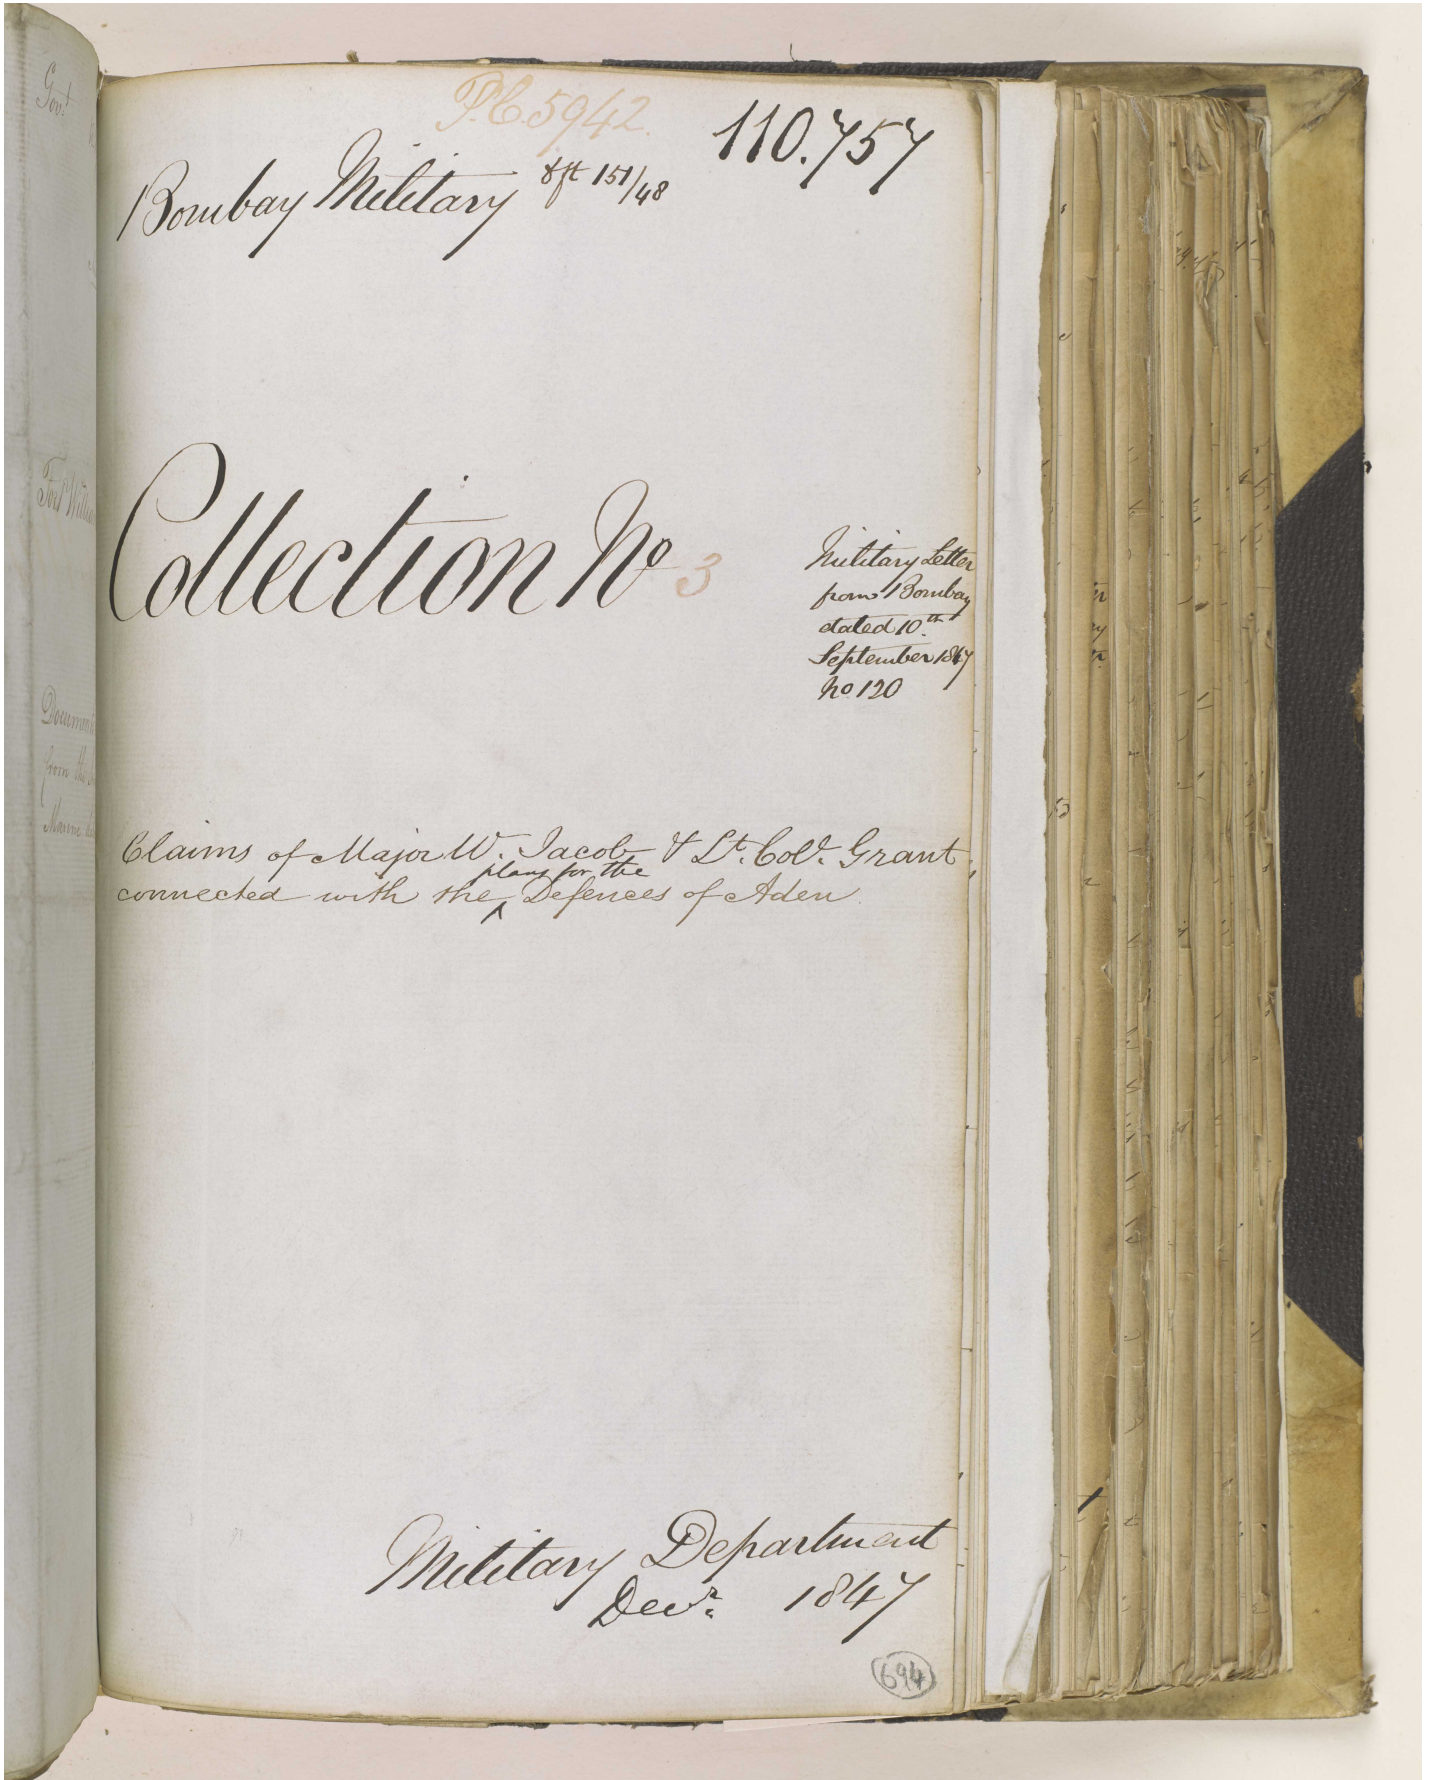 Govt.
P.C. 5942.
110.757
Bombay Military dft 151/48
Fort
Collection No 3
Military Letter
from Bombay
dated 10.th
September 1847
No. 120
from the
Marine
Claims of Major W. Jacob & Lt. Col. Grant,
plans for the
connected with the ^ Defences of Aden.
Military Department
Decr. 1847
694